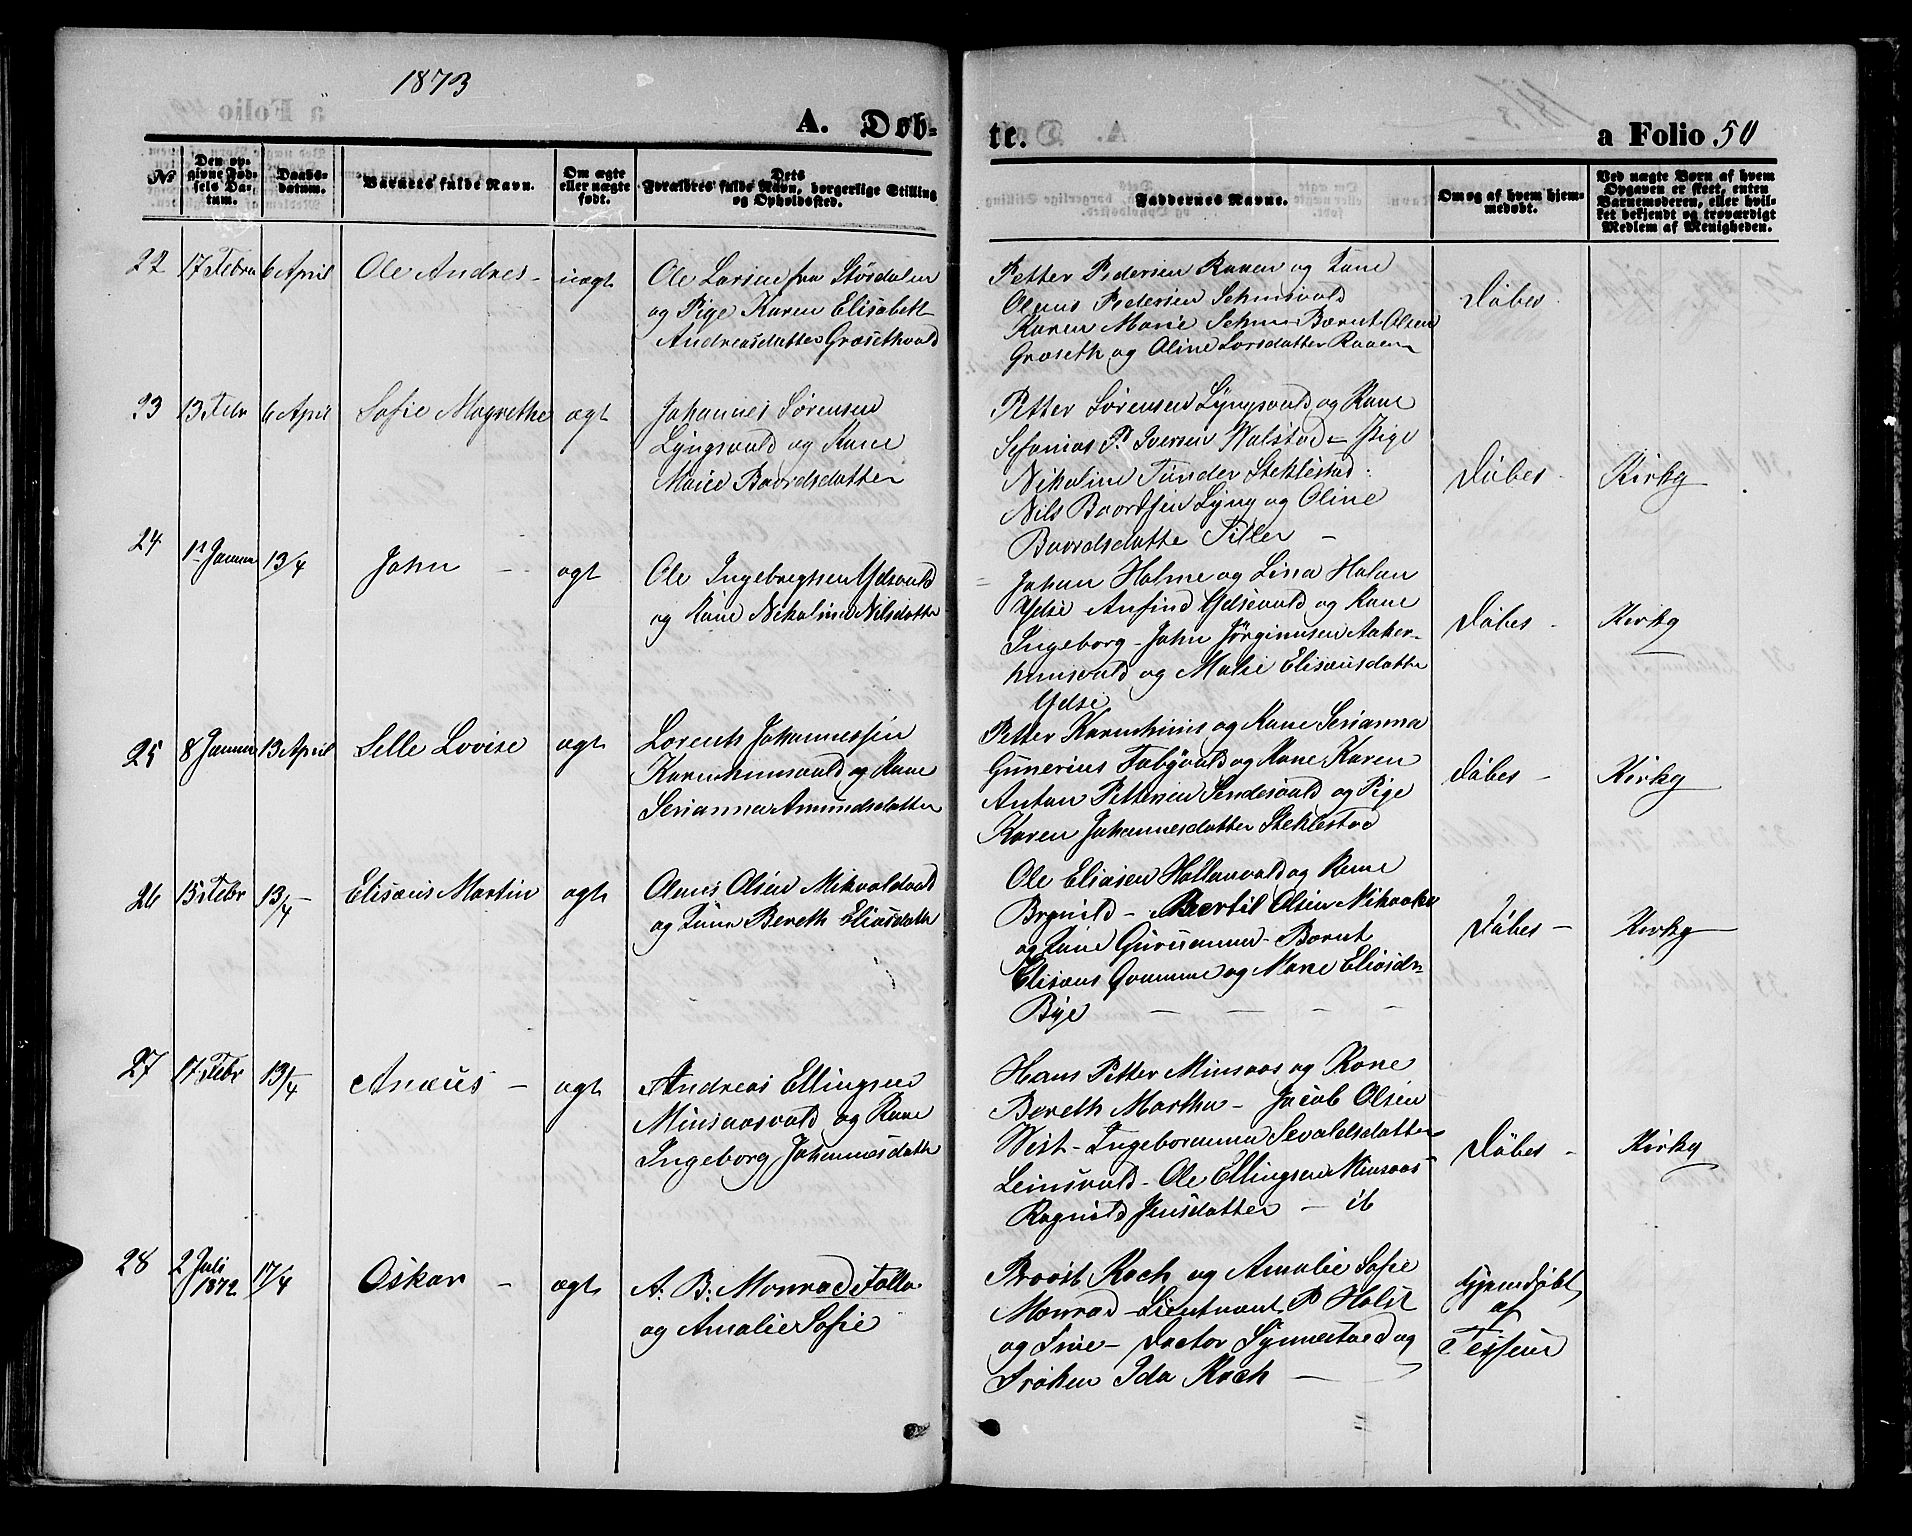 1873
A. Døb-
te.
a Folio 50
No
Den op-
givne Fød-
sels Da-
tum.
Daabs-
datum.
Barnets fulde Navn.
Om ægte
eller uægte
født.
Dets
Forældres fulde Navn, borgerlige Stilling
og Opholdssted.
Faddernes Navne.
Om og af hvem hjem-
medøbt.
Ved uægte Børn af hvem
Opgaven er skeet, enten
Barnemoderen, eller hvil-
ket bekjendt og troværdigt
Medlem af Menigheden.
22 17 Febru 6 April Ole Andres - uægt
Ole Larsen fra Størdalen
og Pige Karen Elisabeth
Andreasdatter Græsethvald
Petter Pedersen Raaen og Kone
Olaus Pedersen
Karen Marie Bærnt Olsen
Græseth og Oline Larsdatter Raaen
Døbes
23 13 Febr 6 April Sofie Magrethe ægt
Johannes Sørensen
Lyngsvald og Kone
Marie Baardsdatter
Petter Sørensen Lyngsvald og Kone
Sefanias P. Iversen Walstad - Pige
Nikoline Tønder Steklestad
Nils Baardsen Lyng og Oline
Baardsdatte Tiller -
Døbes - Kirky
24 12 Januar 13/4 John - ægt
Ole Ingebregtsen Ydsvald
og Kone Nikoline Nilsdatter
Johan Holme og Lina Holan
Ydse Anfind Ydsevald og Kone
Ingeborg - John Jørginusen Aaker-
humsvald og Malie Elisæusdatte
Ydse
Døbes - Kirky
25 8 Januar 13 April Selle Lovise ægt
Lorents Johannessen
Karenhumsvald og Kone
Serianna Amundsdatter
Petter Karenhums og Kone Serianna
Gunerius Fæbyvald og Kone Karen
Anton Pettersen Sendesvald og Pige
Karen Johannesdatter Steklestad
Døbes - Kirky
26 15 Febr 13/4 - Elisæus Martin ægt
Olaus Olsen
og Kone Bereth Eliasdatte
Ole Eliasen Hallanvald og Kone
Brynild - Bertil Olsen
og Kone - Bærnt
Elisæus og Marie Eliasdr
Bye - - - -
Døbes - Kirky
27 17 Febr 13/4 Anæus - ægt
Andreas Ellingsen
Minsaasvald og Kone
Ingeborg Johannesdatte
Hans Petter Minsaas og Kone
Bereth Martha - Jacob Olsen
Wist - Ingeboranna Sevaldsdatter
Leinsvald - Ole Ellingsen Minsaas
Ragnild Jensdatter - ib
Døbes - Kirky
28 2 Juli
1872 17/4 Oskar - ægt
A. B. Monrad Falla
og Amalie Sofie
Provst Koch og Amalie Sofie
Monrad - Lieutnant P Holst
og Frue - Doctor Synnestved og
Frøken Ida Koch -
hjemdøbt
af